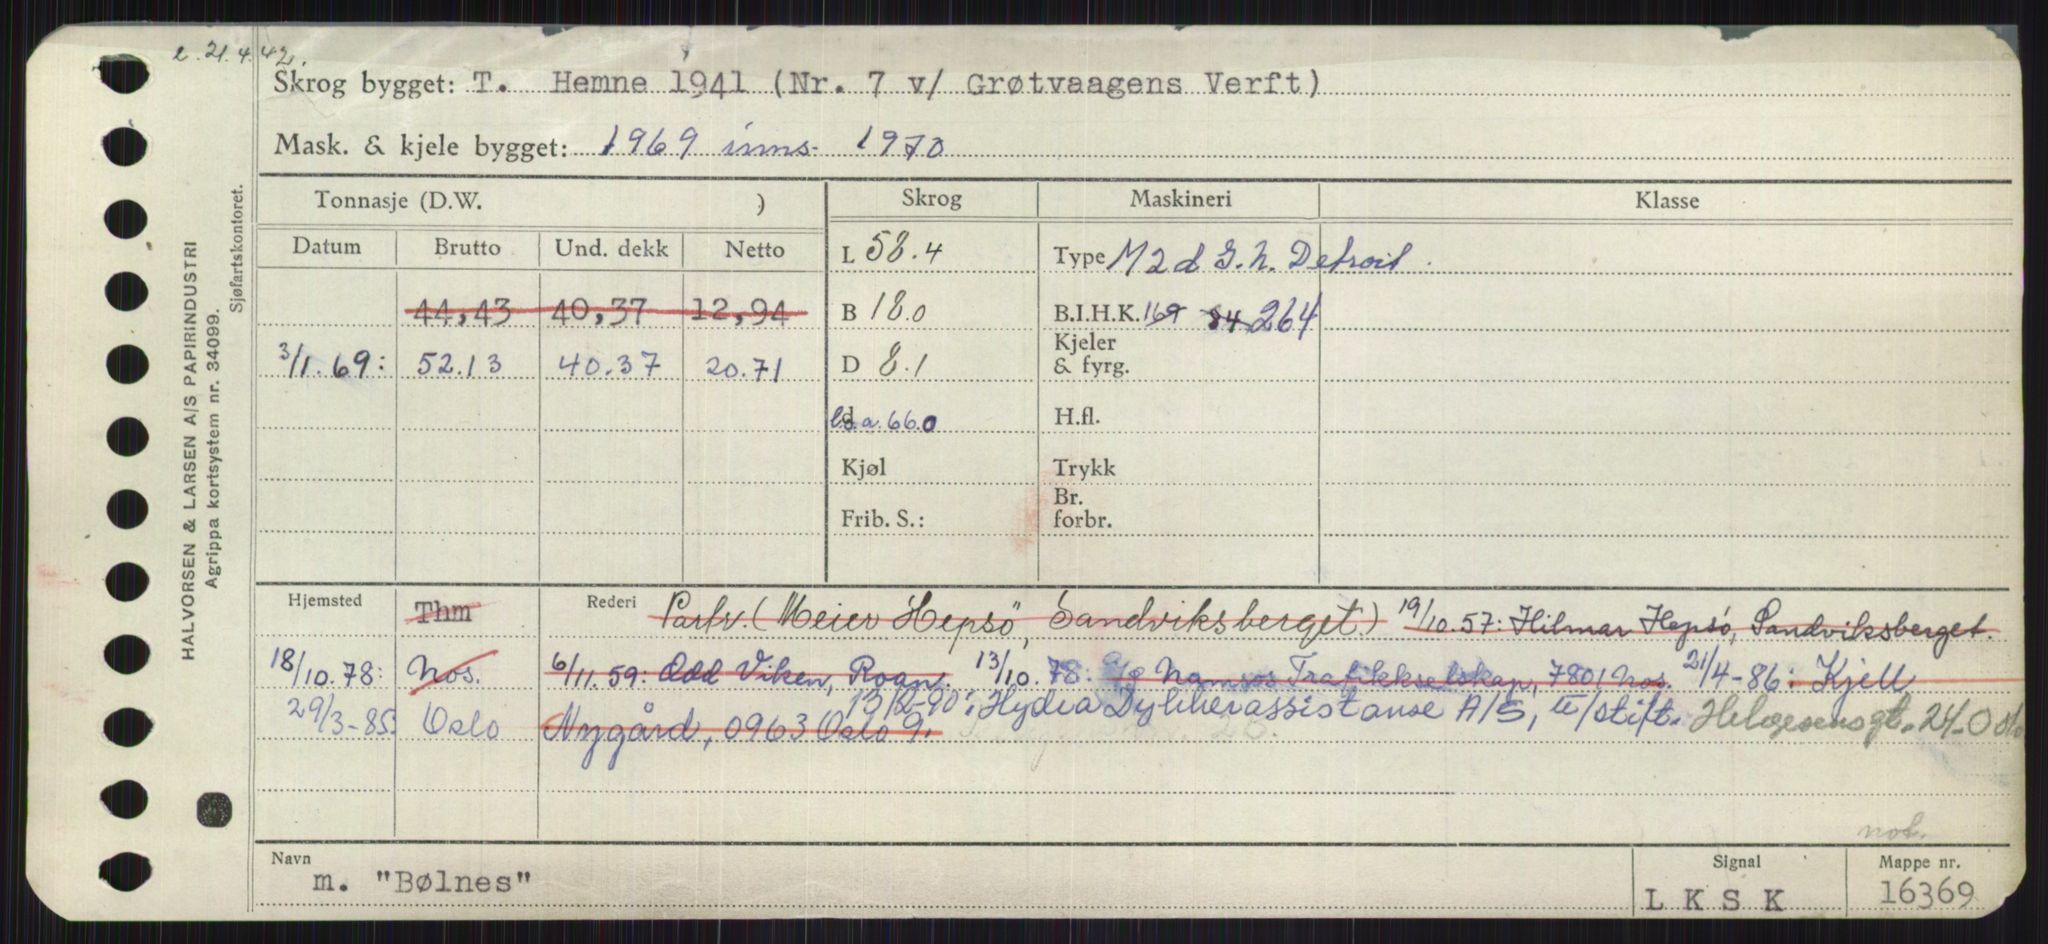 21.4.42.
Skrog bygget: T. Hemne 1941 (Nr. 7 v/ Grøtvaagens Verft)
Mask. & kjele bygget: 1969 inns. 1970
Tonnasje (D.W. ) Skrog Maskineri Klasse
Datum Brutto Und. dekk Netto L 58.4 Type M 2 d G.M. Detroit.
44,43 40,37 12,94 B 18.0 B.I.H.K. 169 84 264
3/1.69: 52.13 40.37 20.71 D 8.1 Kjeler & fyrg.
d l.o.a. 66.0 H.fl.
Kjøl Trykk
Frib. S.: Br. forbr.
Hjemsted Thm Rederi Partr. (Meier Hepsö, Sandviksberget) 19/10.57: Hilmar Hepsö, Sandviksberget.
18/10.78: Nos. 6/11.59: Odd Viken, Roan. 13/10.78: Namsos Trafikkselskap, 7801 Nos. 21/4-86: Kjell
29/3-85: Oslo Nygård, 0963 Oslo 9. 13/2-90: Hydra Dykkerassistanse A/S, u/stift. Helgesensgt. 24-Oslo
not.
Navn m. "Bølnes" Signal L K S K Mappe nr. 16369
HALVORSEN & LARSEN A/S PAPIRINDUSTRI
Agrippa kortsystem nr. 34099.
Sjøfartskontoret.